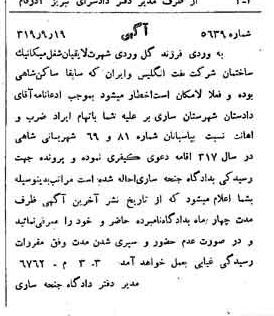 از طرف مدیر دفتر دادسرای تبریز
شماره ۵۶۳۹ آگهی ۱۹ر۹ر۳۱۹
به وردی فرزند گل وردی شهرت لایقیان شغل میکانیک
ساختمان شرکت نفت انگلیس و ایران که سابقا ساکن شاهی
بوده و فعلا لامکان است اخطار میشود بموجب ادعانامه آقای
دادستان شهرستان ساری بر علیه شما باتهام ایراد ضرب و
اهانت نسبت بپاسبانان شماره ۸۱ و ۶۹ شهربانی شاهی
در سال ۳۱۷ اقامه دعوی کیفری نموده و پرونده جهت
رسیدگی بدادگاه جنحه ساری احاله شده است مراتب بدینوسیله
بشما اعلام میشود که از تاریخ نشر آخرین آگهی ظرف
مدت چهار ماه بدادگاه نامبرده حاضر و خود را معرفی نمائید
و در صورت عدم حضور و سپری شدن مدت وفق مقررات
رسیدگی غیابی بعمل خواهد آمد ۳ـ۳ م ـ ۶۷۶۲
مدیر دفتر دادگاه جنحه ساری